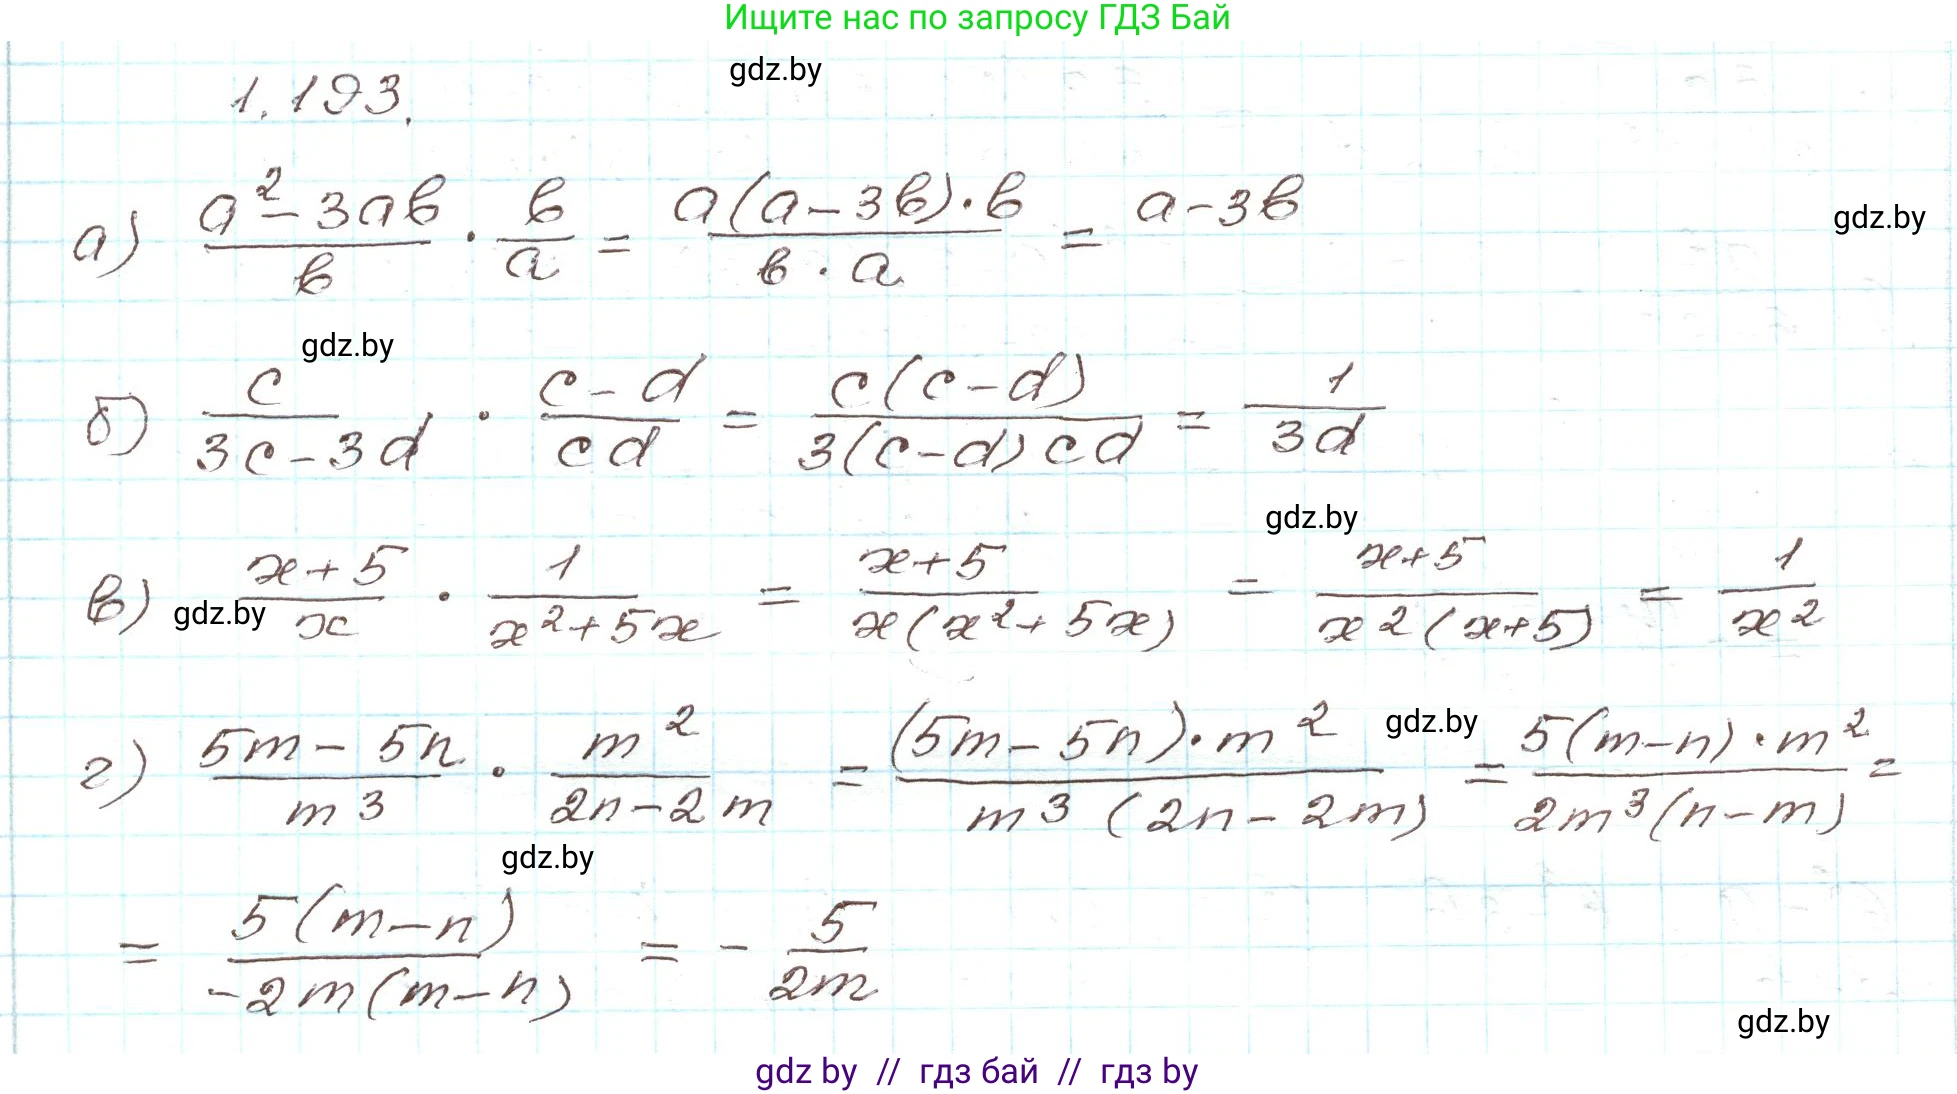 Ищите нас по запросу ГДЗ Бай
gdz.by
1.193.
а) (a² - 3ab)/b · b/a = (a(a - 3b) · b)/(b · a) = a - 3b
gdz.by
gdz.by
б) c/(3c - 3d) · (c - d)/(cd) = (c(c - d))/(3(c - d)cd) = 1/(3d)
gdz.by
в) (x + 5)/x · 1/(x² + 5x) = (x + 5)/(x(x² + 5x)) = (x + 5)/(x²(x + 5)) = 1/x²
gdz.by
г) (5m - 5n)/m³ · m²/(2n - 2m) = ((5m - 5n) · m²)/(m³(2n - 2m)) = (5(m - n) · m²)/(2m³(n - m)) =
gdz.by
gdz.by
= (5(m - n))/(-2m(m - n)) = - 5/(2m)
gdz.by
gdz by // гдз бай // гдз by